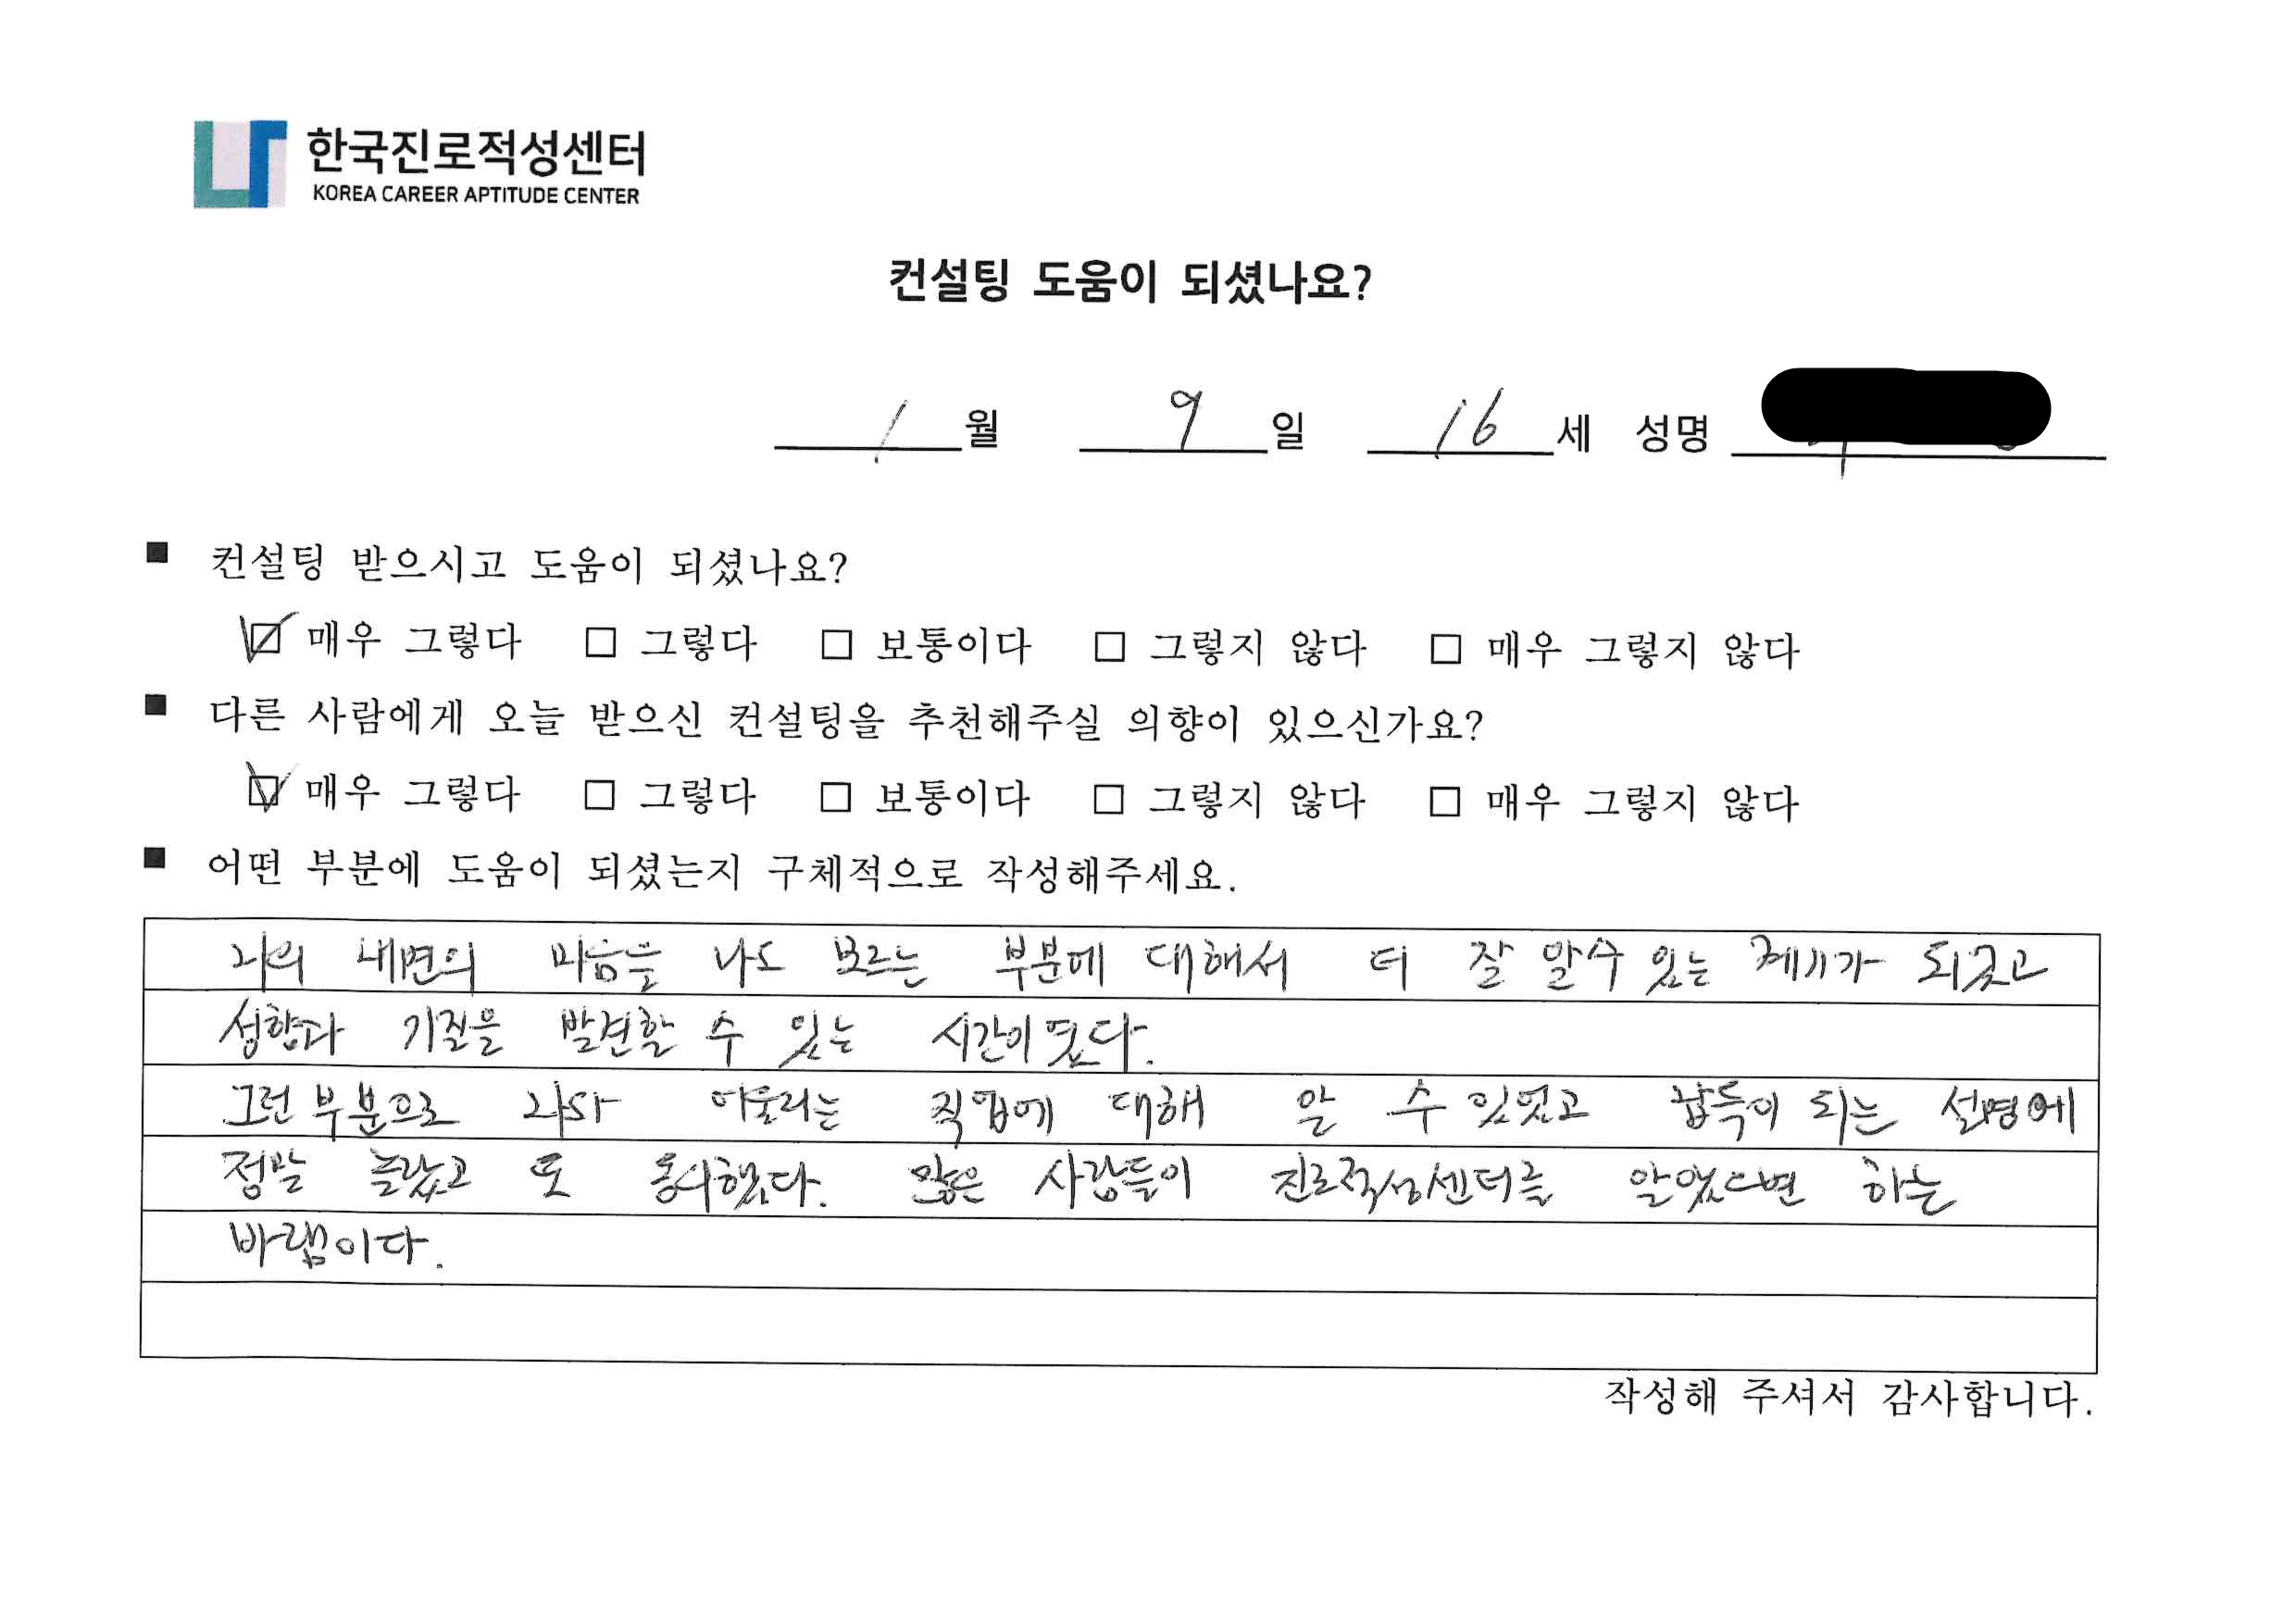 한국진로적성센터
KOREA CAREER APTITUDE CENTER
컨설팅 도움이 되셨나요?
1 월 9 일 16 세 성명
■ 컨설팅 받으시고 도움이 되셨나요?
☑ 매우 그렇다 □ 그렇다 □ 보통이다 □ 그렇지 않다 □ 매우 그렇지 않다
■ 다른 사람에게 오늘 받으신 컨설팅을 추천해주실 의향이 있으신가요?
☑ 매우 그렇다 □ 그렇다 □ 보통이다 □ 그렇지 않다 □ 매우 그렇지 않다
■ 어떤 부분에 도움이 되셨는지 구체적으로 작성해주세요.
나의 내면의 마음을 나도 모르는 부분에 대해서 더 잘 알수 있는 계기가 되었고
성향과 기질을 발견할 수 있는 시간이 였다.
그런 부분으로 나와 어울리는 직업에 대해 알 수 있었고 납득이 되는 설명에
정말 놀랐고 또 동의했다. 많은 사람들이 진로적성센터를 알았으면 하는
바램이다.
작성해 주셔서 감사합니다.